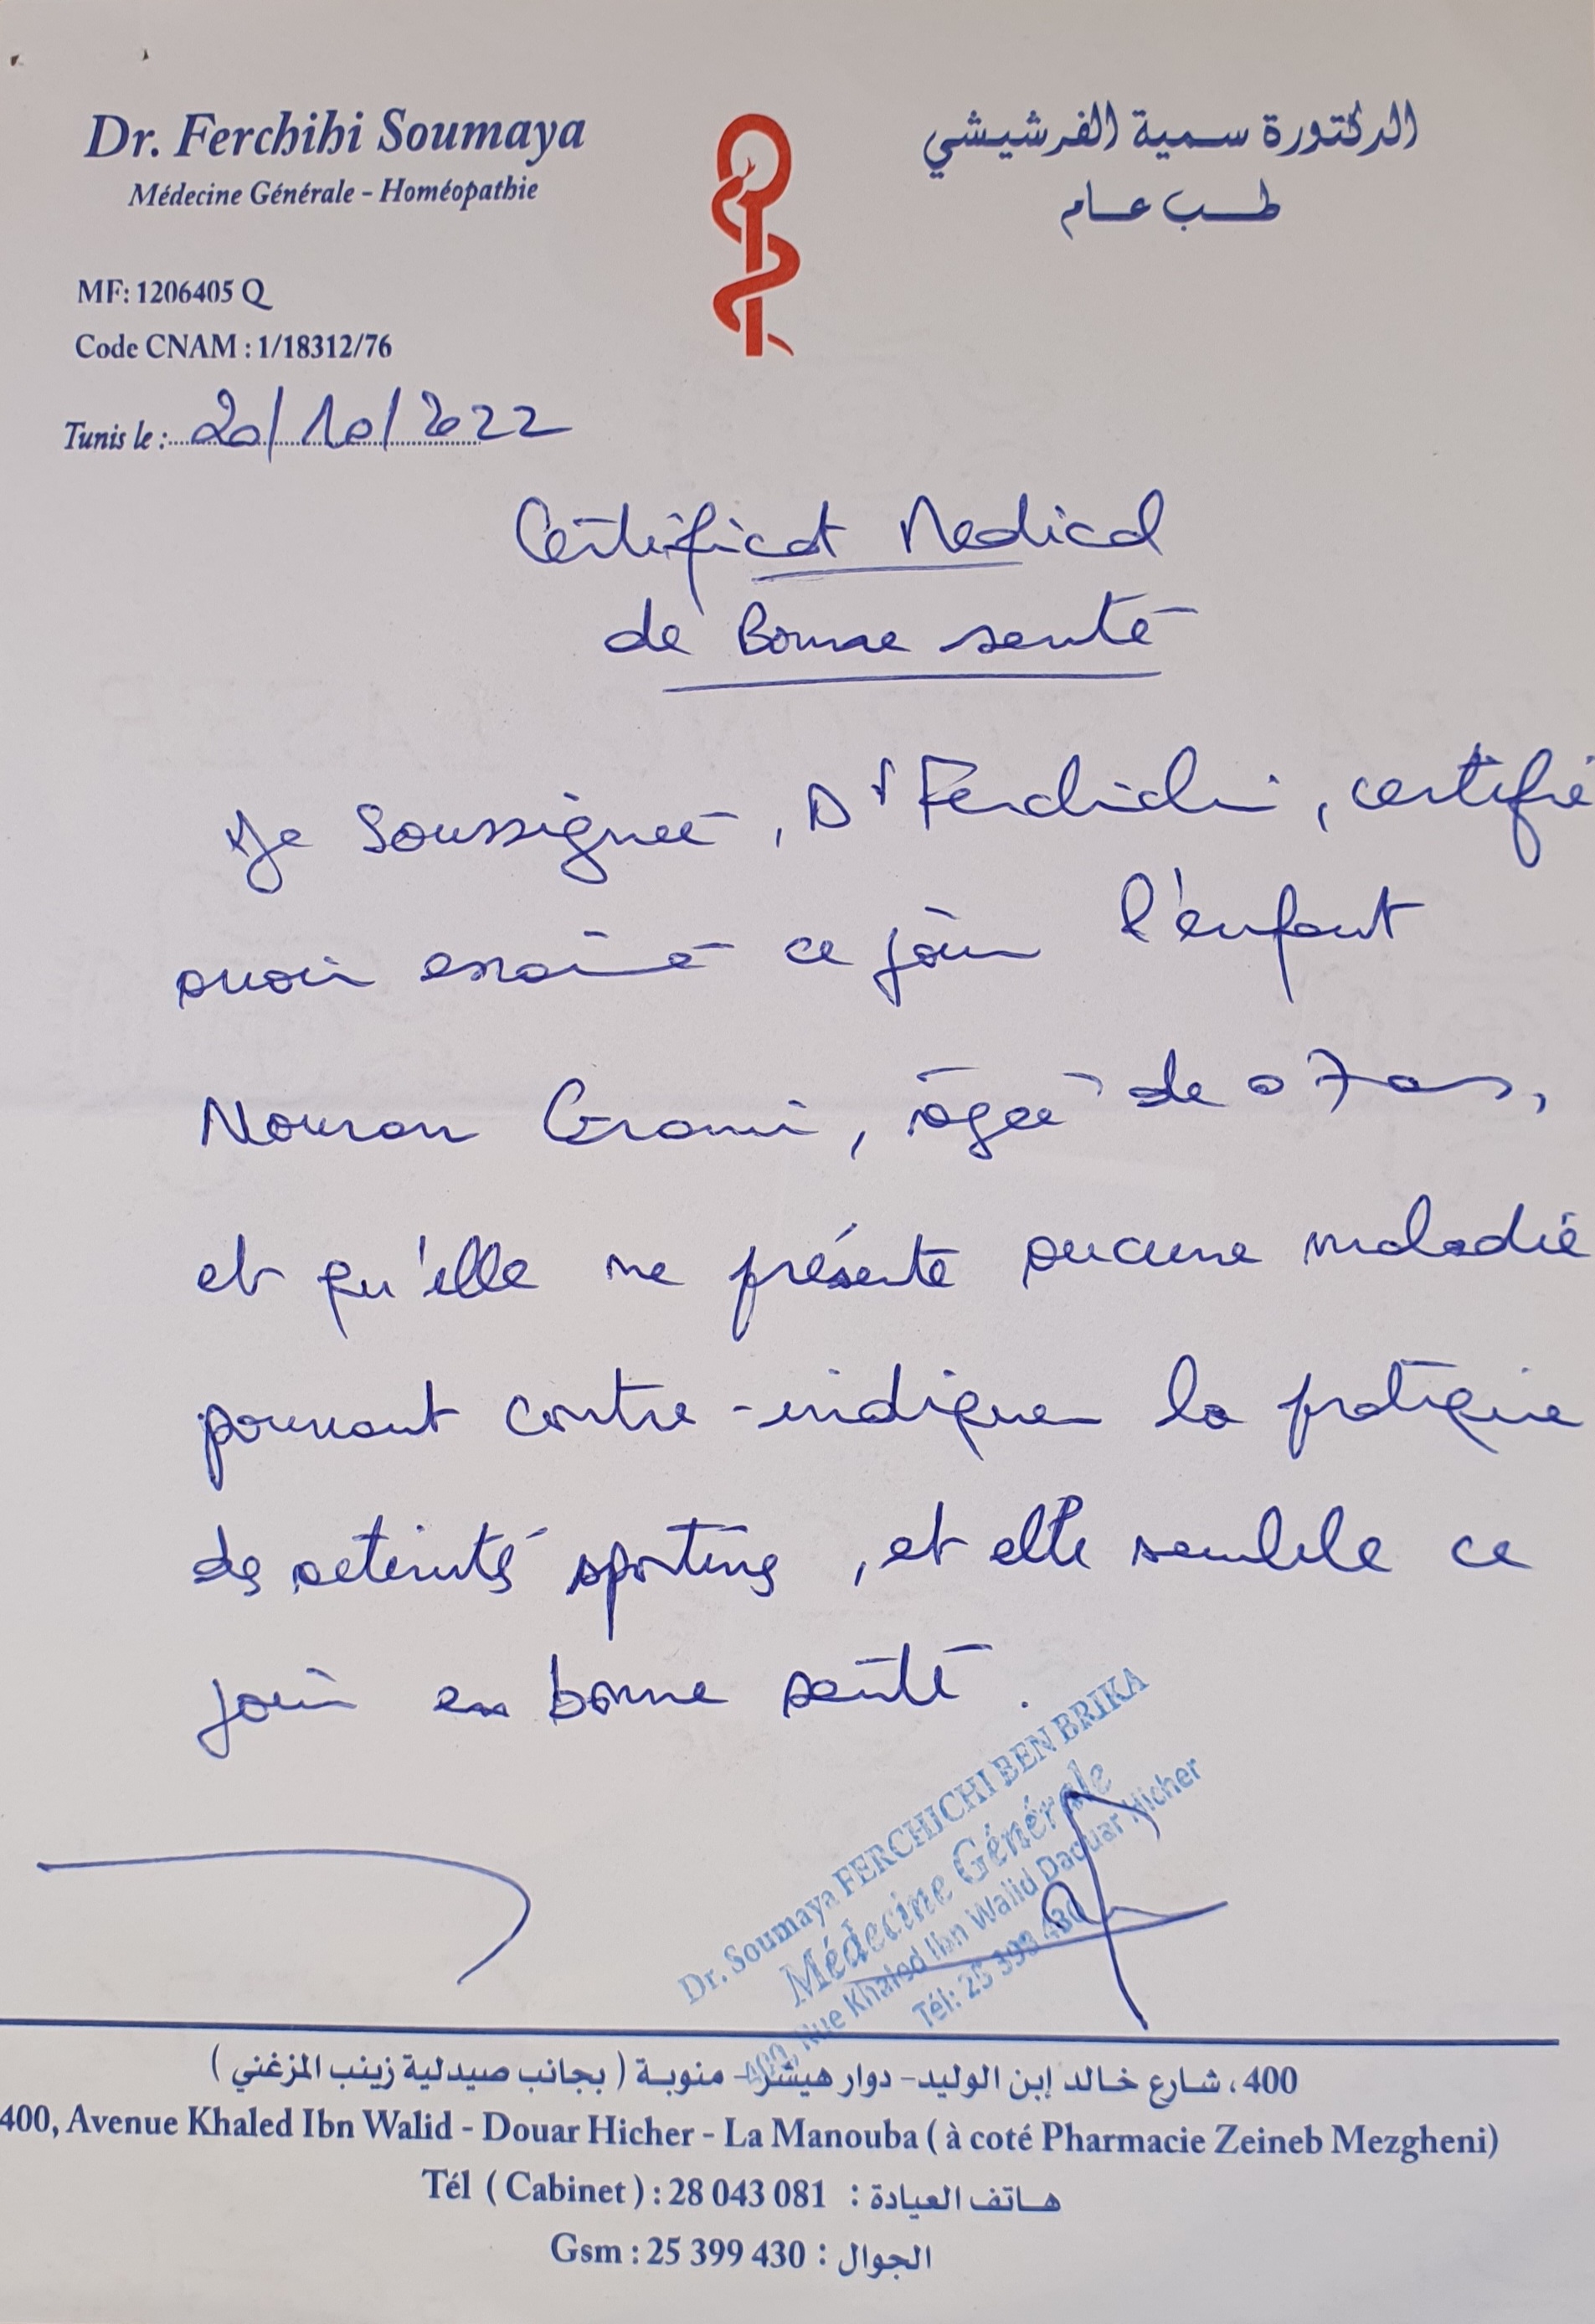 Dr. Ferchihi Soumaya
Médecine Générale - Homéopathie
الدكتورة سمية الفرشيشي
طب عام
MF: 1206405 Q
Code CNAM : 1/18312/76
Tunis le : 20/10/2022
Certificat Medical
de Bonne santé
Je Soussignée, Dr Ferchichi, certifie
avoir examiné ce jour l'enfant
Nouran Grami, âgée de 07 ans,
et qu'elle ne présente aucune maladie
pouvant contre-indiquer la pratique
des activités sportives, et elle semble ce
jour en bonne santé.
Dr. Soumaya FERCHICHI BEN BRIKA
Médecine Générale
400, Rue Khaled Ibn Walid Daouar Hicher
Tél: 25 399 430
400، شارع خالد إبن الوليد- دوار هيشر- منوبة ( بجانب صيدلية زينب المزغني )
400, Avenue Khaled Ibn Walid - Douar Hicher - La Manouba ( à coté Pharmacie Zeineb Mezgheni)
Tél ( Cabinet ) : 28 043 081 : هاتف العيادة
Gsm : 25 399 430 : الجوال